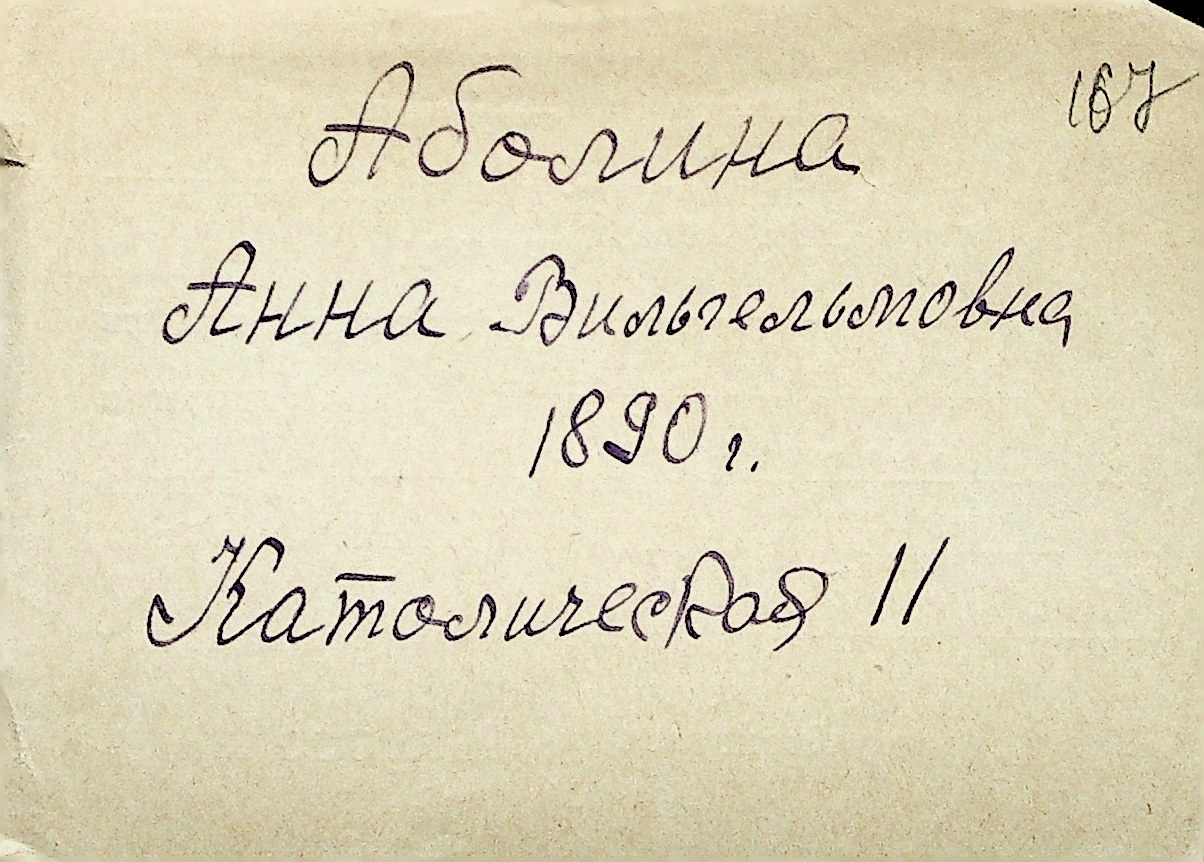 167
Аболина
Анна Вильгельмовна
1890 г.
Католическая 11